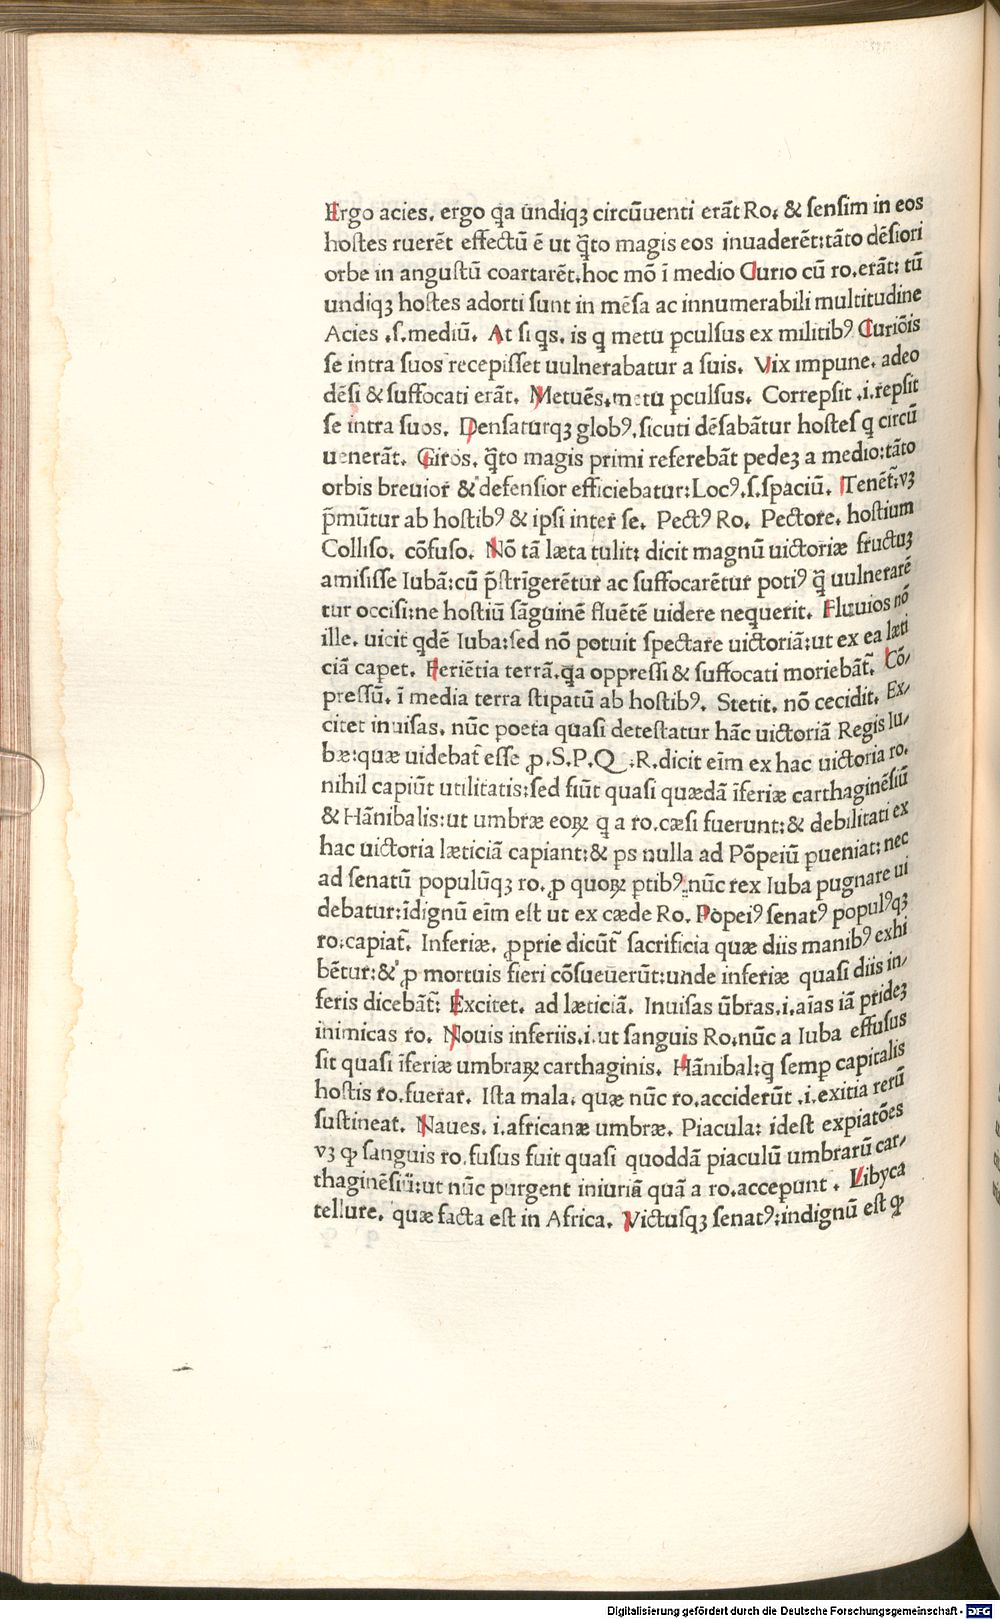 Ergo acies. ergo q̄a undiqꝫ circūuenti erāt Ro. & ſenſim in eos
hoſtes ruerēt effectū ē ut q̄to magis eos inuaderēt: tāto dēſiori
orbe in anguſtū coartarēt. hoc mō ī medio Curio cū ro. erāt: tū
undiqꝫ hoſtes adorti ſunt in mēſa ac innumerabili multitudine
Acies .ſ. mediū. At ſi qs. is q metu ꝑculſus ex militibꝰ Curiōis
se intra ſuos recepiſſet uulnerabatur a ſuis. Vix impune. adeo
dēſi & ſuffocati erāt. Metuēs. metu pculſus. Correpſit .i. repſit
ſe intra ſuos. Denſaturqꝫ globꝰ. ſicuti dēſabātur hoſteſ q circū
uenerāt. Giros. q̄to magis primi referebāt pedeꝫ a medio: tāto
orbis breuior & defenſior efficiebatur: Locꝰ. ſ. ſpaciū. Tenēt̄: vꝫ
p̄mūtur ab hoſtibꝰ & ipſi inter ſe. Pectꝰ Ro. Pectore. hoſtium
Colliſo. cōfuſo. Nō tā læta tulit: dicit magnū uictoriæ fructuꝫ
amiſiſſe Iubā: cū p̄ſtrīgerētur ac ſuffocarētur potiꝰ q̄ uulnerarē
tur occiſi: ne hoſtiū ſāguinē fluētē uidere nequerit. Fluuios nō
ille. uicit qdē Iuba: ſed nō potuit ſpectare uictoriā: ut ex ea læti
ciā capet. Feriētia terrā. q̄a oppreſſi & ſuffocati moriebāt̄. Cō/
preſſū. ī media terra ſtipatū ab hoſtibꝰ. Stetit. nō cecidit. Ex/
citet inuiſas. nūc poeta quaſi deteſtatur hāc uictoriā Regis Iu/
bæ: quæ uidebat̄ eſſe ꝓ. S. P. Q. R. dicit eīm ex hac uictoria ro.
nihil capiūt utilitatis: ſed fiūt quaſi quædā īferiæ carthaginēſiū
& Hānibalis: ut umbræ eoꝝ q a ro. cæſi fuerunt: & debilitati ex
hac uictoria læticiā capiant: & ꝑs nulla ad Pōpeiū ꝑueniat: nec
ad ſenatū populūqꝫ ro. ꝓ quoꝝ ꝑtibꝰ: nūc rex Iuba pugnare ui
debatur: īdignū eīm eſt ut ex cæde Ro. Pōpeiꝰ ſenatꝰ populꝰqꝫ
ro: capiat̄. Inferiæ. ꝓprie dicūt̄ ſacrificia quæ diis manibꝰ exhi
bētur: & ꝓ mortuis fieri cōſueuerūt: unde inferiæ quaſi diis in/
feris dicebāt̄: Excitet. ad læticiā. Inuiſas ūbras. i. aīas iā prideꝫ
inimicas ro. Nouis inferiis. i. ut ſanguis Ro. nūc a Iuba effuſus
ſit quaſi īferiæ umbraꝝ carthaginis. Hānibal: q ſemꝑ capitalis
hoſtis ro. fuerat. Iſta mala. quæ nūc ro. acciderūt .i. exitia rerū
ſuſtineat. Naues. i. africanæ umbræ. Piacula: ideſt expiatōes
vꝫ ꝙ ſanguis ro. fuſus fuit quaſi quoddā piaculū umbrarū car/
thaginēſiū: ut nūc purgent iniuriā quā a ro. accepunt. Libyca
tellure. quæ facta eſt in Africa. Victuſqꝫ ſenatꝰ: indignū eſt ꝙ
Digitalisierung gefördert durch die Deutsche Forschungsgemeinschaft - DFG